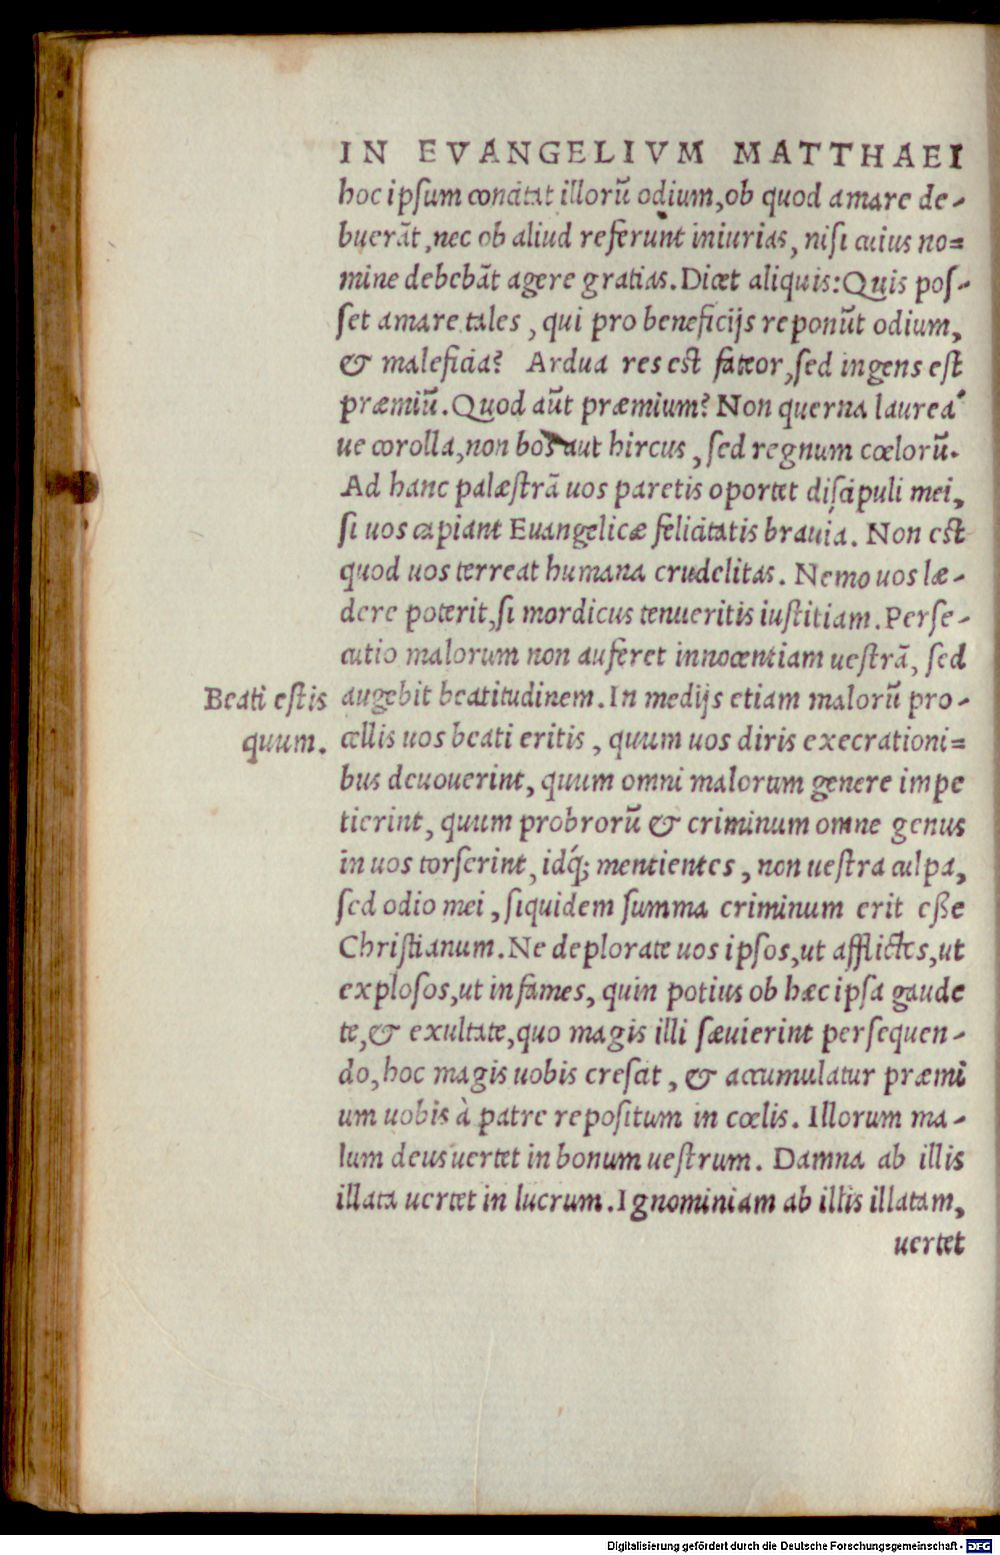 IN EVANGELIVM MATTHAEI
hoc ipsum concitat illorũ odium, ob quod amare de-
buerãt, nec ob aliud referunt iniurias, nisi cuius no=
mine debebãt agere gratias. Dicet aliquis: Quis pos-
set amare tales, qui pro beneficijs reponũt odium,
& maleficia? Ardua res est fateor, sed ingens est
præmiũ. Quod aũt præmium? Non querna laurea'
ue corolla, non bos aut hircus, sed regnum cœlorũ.
Ad hanc palæstrã uos paretis oportet discipuli mei,
si uos capiant Euangelicæ felicitatis brauia. Non est
quod uos terreat humana crudelitas. Nemo uos læ-
dere poterit, si mordicus tenueritis iustitiam. Perse-
cutio malorum non auferet innocentiam uestrã, sed
Beati estis
quum.
augebit beatitudinem. In medijs etiam malorũ pro-
cellis uos beati eritis, quum uos diris execrationi=
bus deuouerint, quum omni malorum genere impe
tierint, quum probrorũ & criminum omne genus
in uos torserint, idq́; mentientes, non uestra culpa,
sed odio mei, siquidem summa criminum erit eße
Christianum. Ne deplorate uos ipsos, ut afflictos, ut
explosos, ut infames, quin potius ob hæc ipsa gaude
te, & exultate, quo magis illi sæuierint persequen-
do, hoc magis uobis crescit, & accumulatur præmi
um uobis à patre repositum in cœlis. Illorum ma-
lum deus uertet in bonum uestrum. Damna ab illis
illata uertet in lucrum. Ignominiam ab illis illatam,
uertet
Digitalisierung gefördert durch die Deutsche Forschungsgemeinschaft - DFG